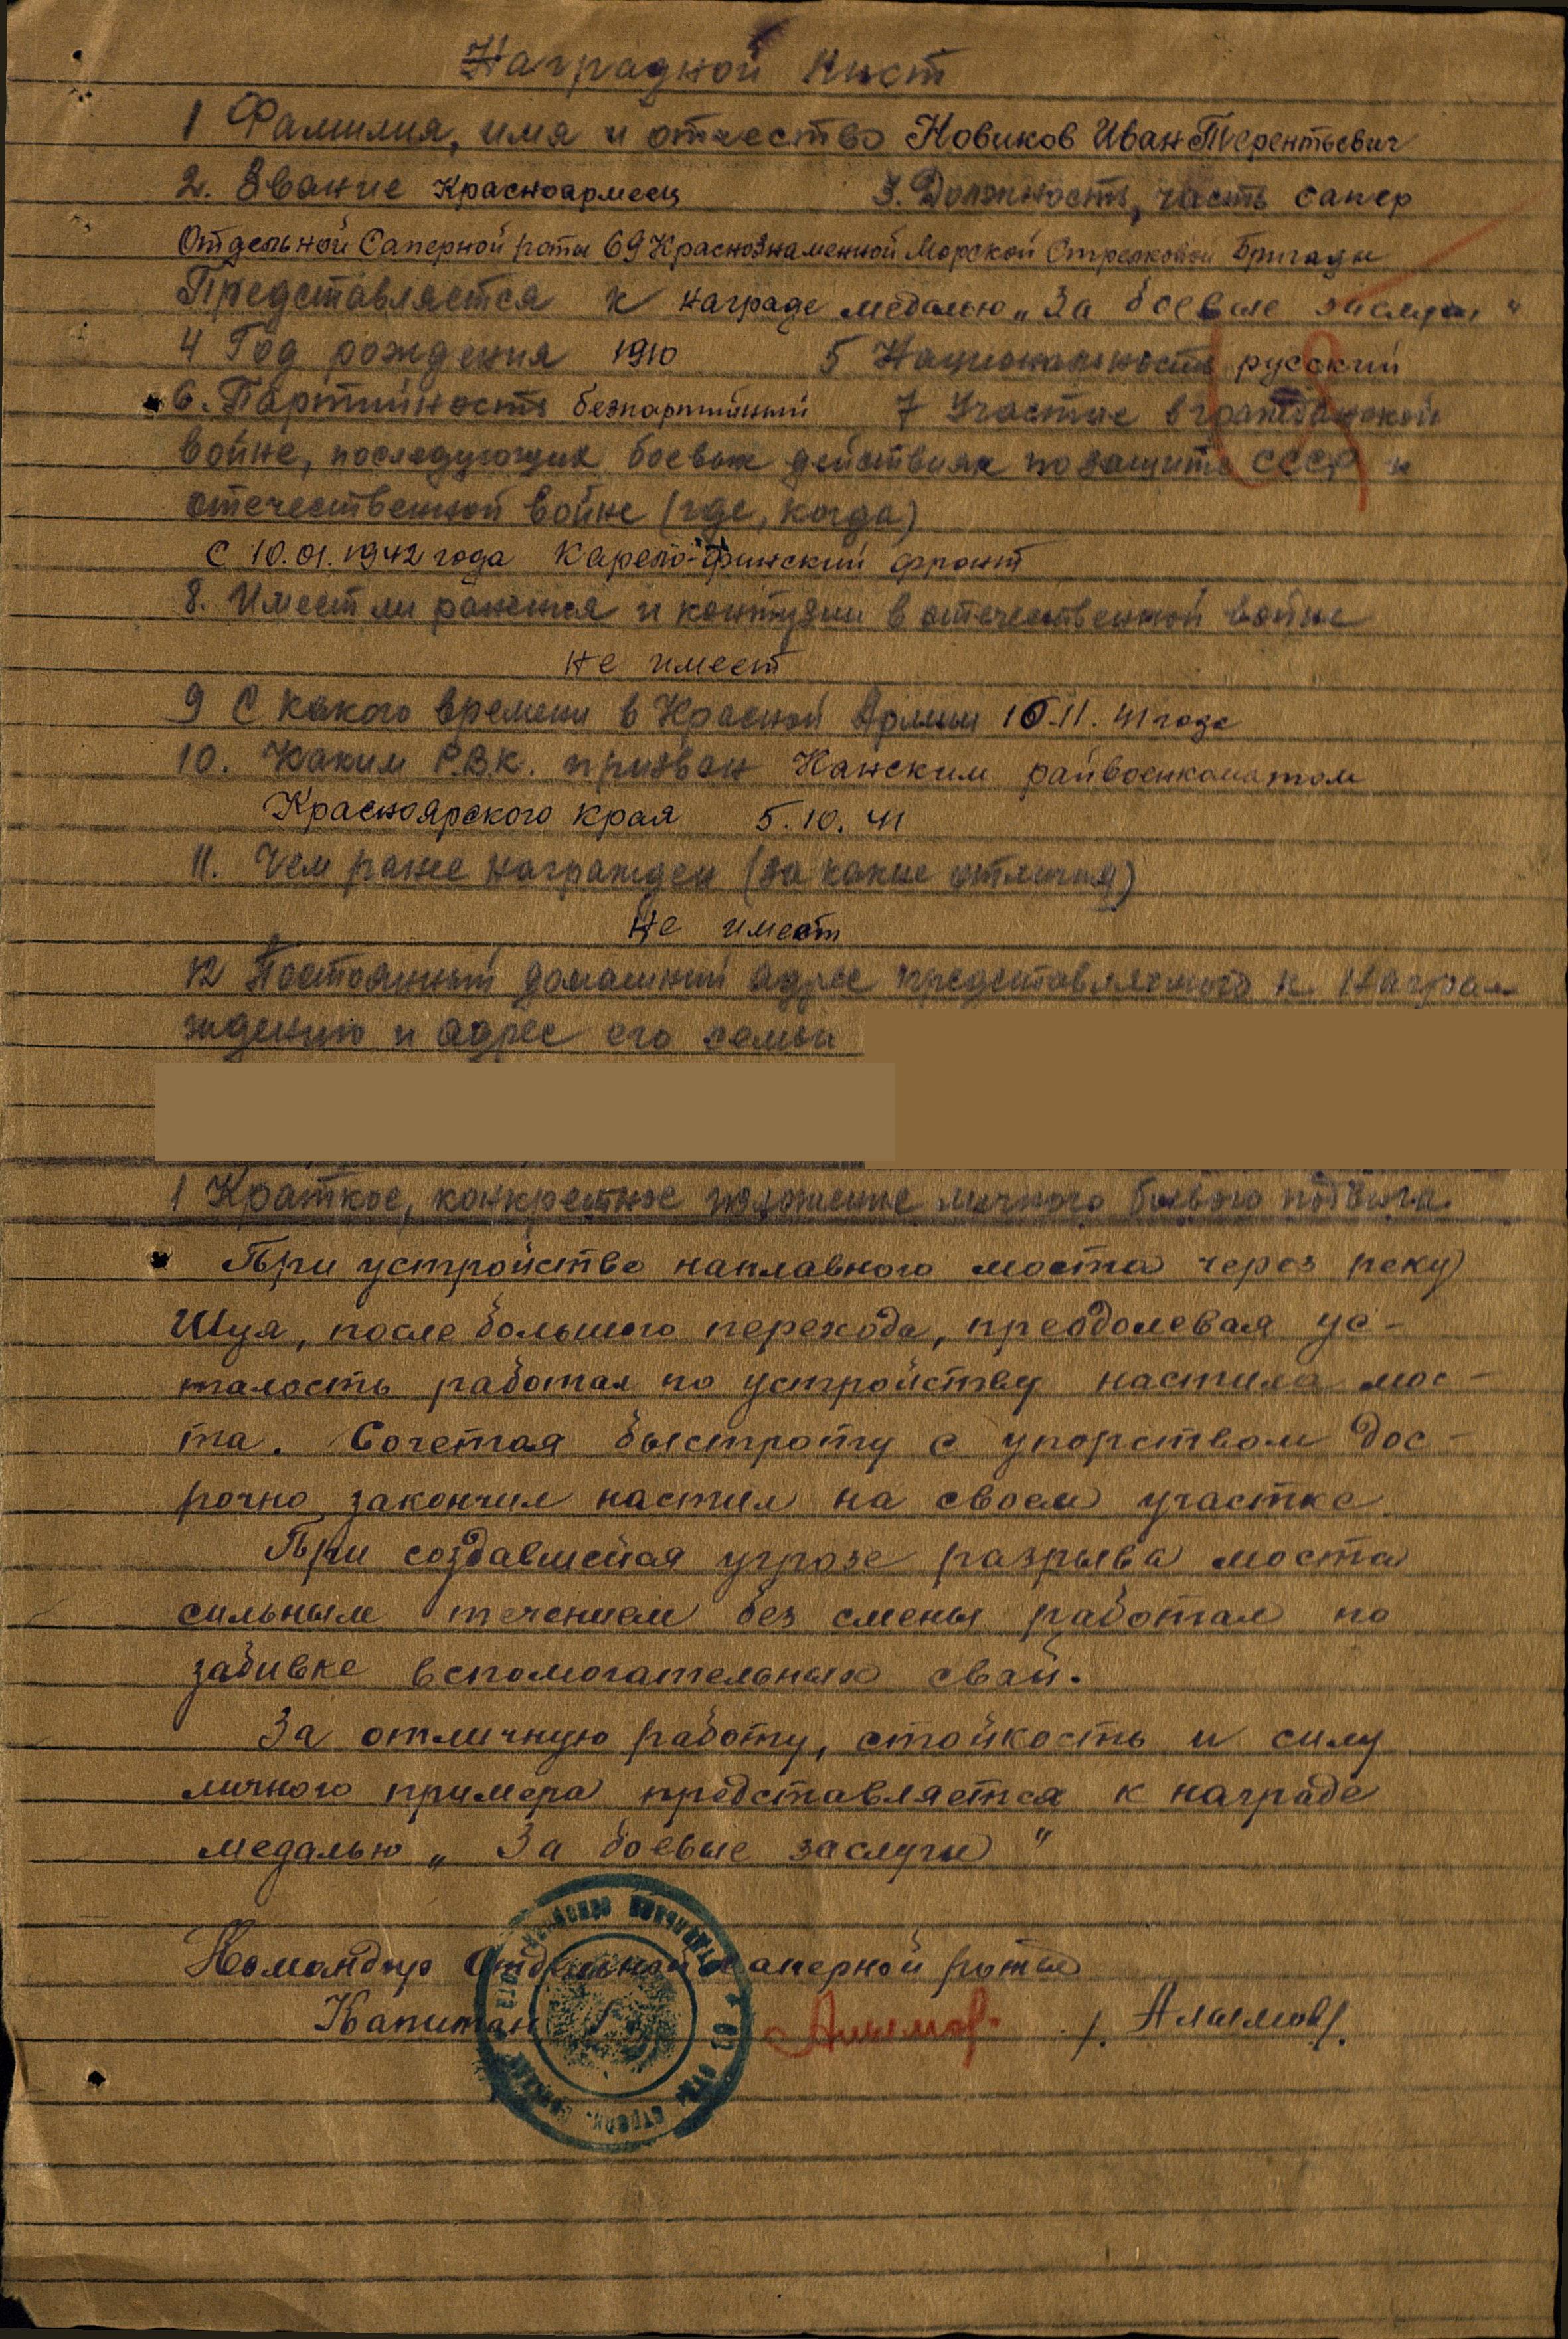 Наградной лист
1 Фамилия, имя и отчество Новиков Иван Терентьевич
2. Звание Красноармеец 3. Должность, часть сапер
Отдельной Саперной роты 69 Краснознаменной Морской Стрелковой Бригады
Представляется к награде медалью „За боевые заслуги“
4 Год рождения 1910 5 Национальность русский
6. Партийность безпартийный 7 Участие в гражданской
войне, последующих боевых действиях по защите СССР и
отечественной войне (где, когда)
С 10.01.1942 года Карело-финский фронт
8. Имеет ли ранения и контузии в отечественной войне
не имеет
9 С какого времени в Красной Армии 16.11.41 года
10. Каким Р.В.К. призван Канским райвоенкоматом
Красноярского края 5.10.41
11. Чем ранее награжден (за какие отличия)
не имеет
12 Постоянный домашний адрес представляемого к награ-
ждению и адрес его семьи
1 Краткое, конкретное изложение личного боевого подвига
При устройстве наплавного моста через реку
Шуя, после большого перехода, преодолевая ус-
талость работал по устройству настила мос-
та. Сочетая быстроту с упорством дос-
рочно закончил настил на своем участке.
При создавшейся угрозе разрыва моста
сильным течением без смены работал по
забивке вспомогательных свай.
За отличную работу, стойкость и силу
личного примера представляется к награде
медалью „За боевые заслуги“
Командир Отдельной саперной роты
Капитан /. Алымов/.